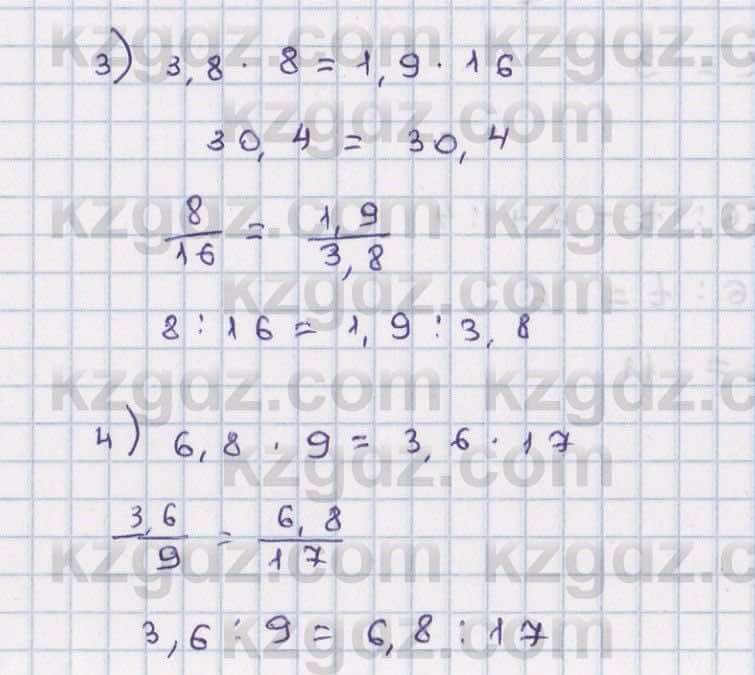 3) 3,8 · 8 = 1,9 · 16
30,4 = 30,4
8/16 = 1,9/3,8
8 : 16 = 1,9 : 3,8
4) 6,8 · 9 = 3,6 · 17
3,6/9 = 6,8/17
3,6 : 9 = 6,8 : 17
kzgdz.com